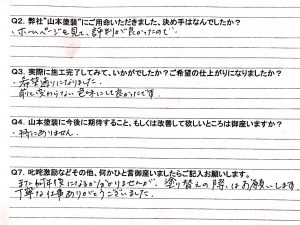 Q2. 弊社"山本塗装"にご用命いただきました、決め手はなんでしたか?
・ホームページを見て、評判が良かったので
Q3. 実際に施工完了してみて、いかがでしたか?ご希望の仕上がりになりましたか?
・希望通りになりました。
前と変わらない色味にして良かったです。
Q4. 山本塗装に今後に期待すること、もしくは改善して欲しいところは御座いますか?
・特にありません。
Q7. 叱咤激励などその他、何かひと言御座いましたらご記入お願いします。
また何年後になるか分かりませんが、塗り替えの際はお願いします
丁寧な仕事ありがとうございました。